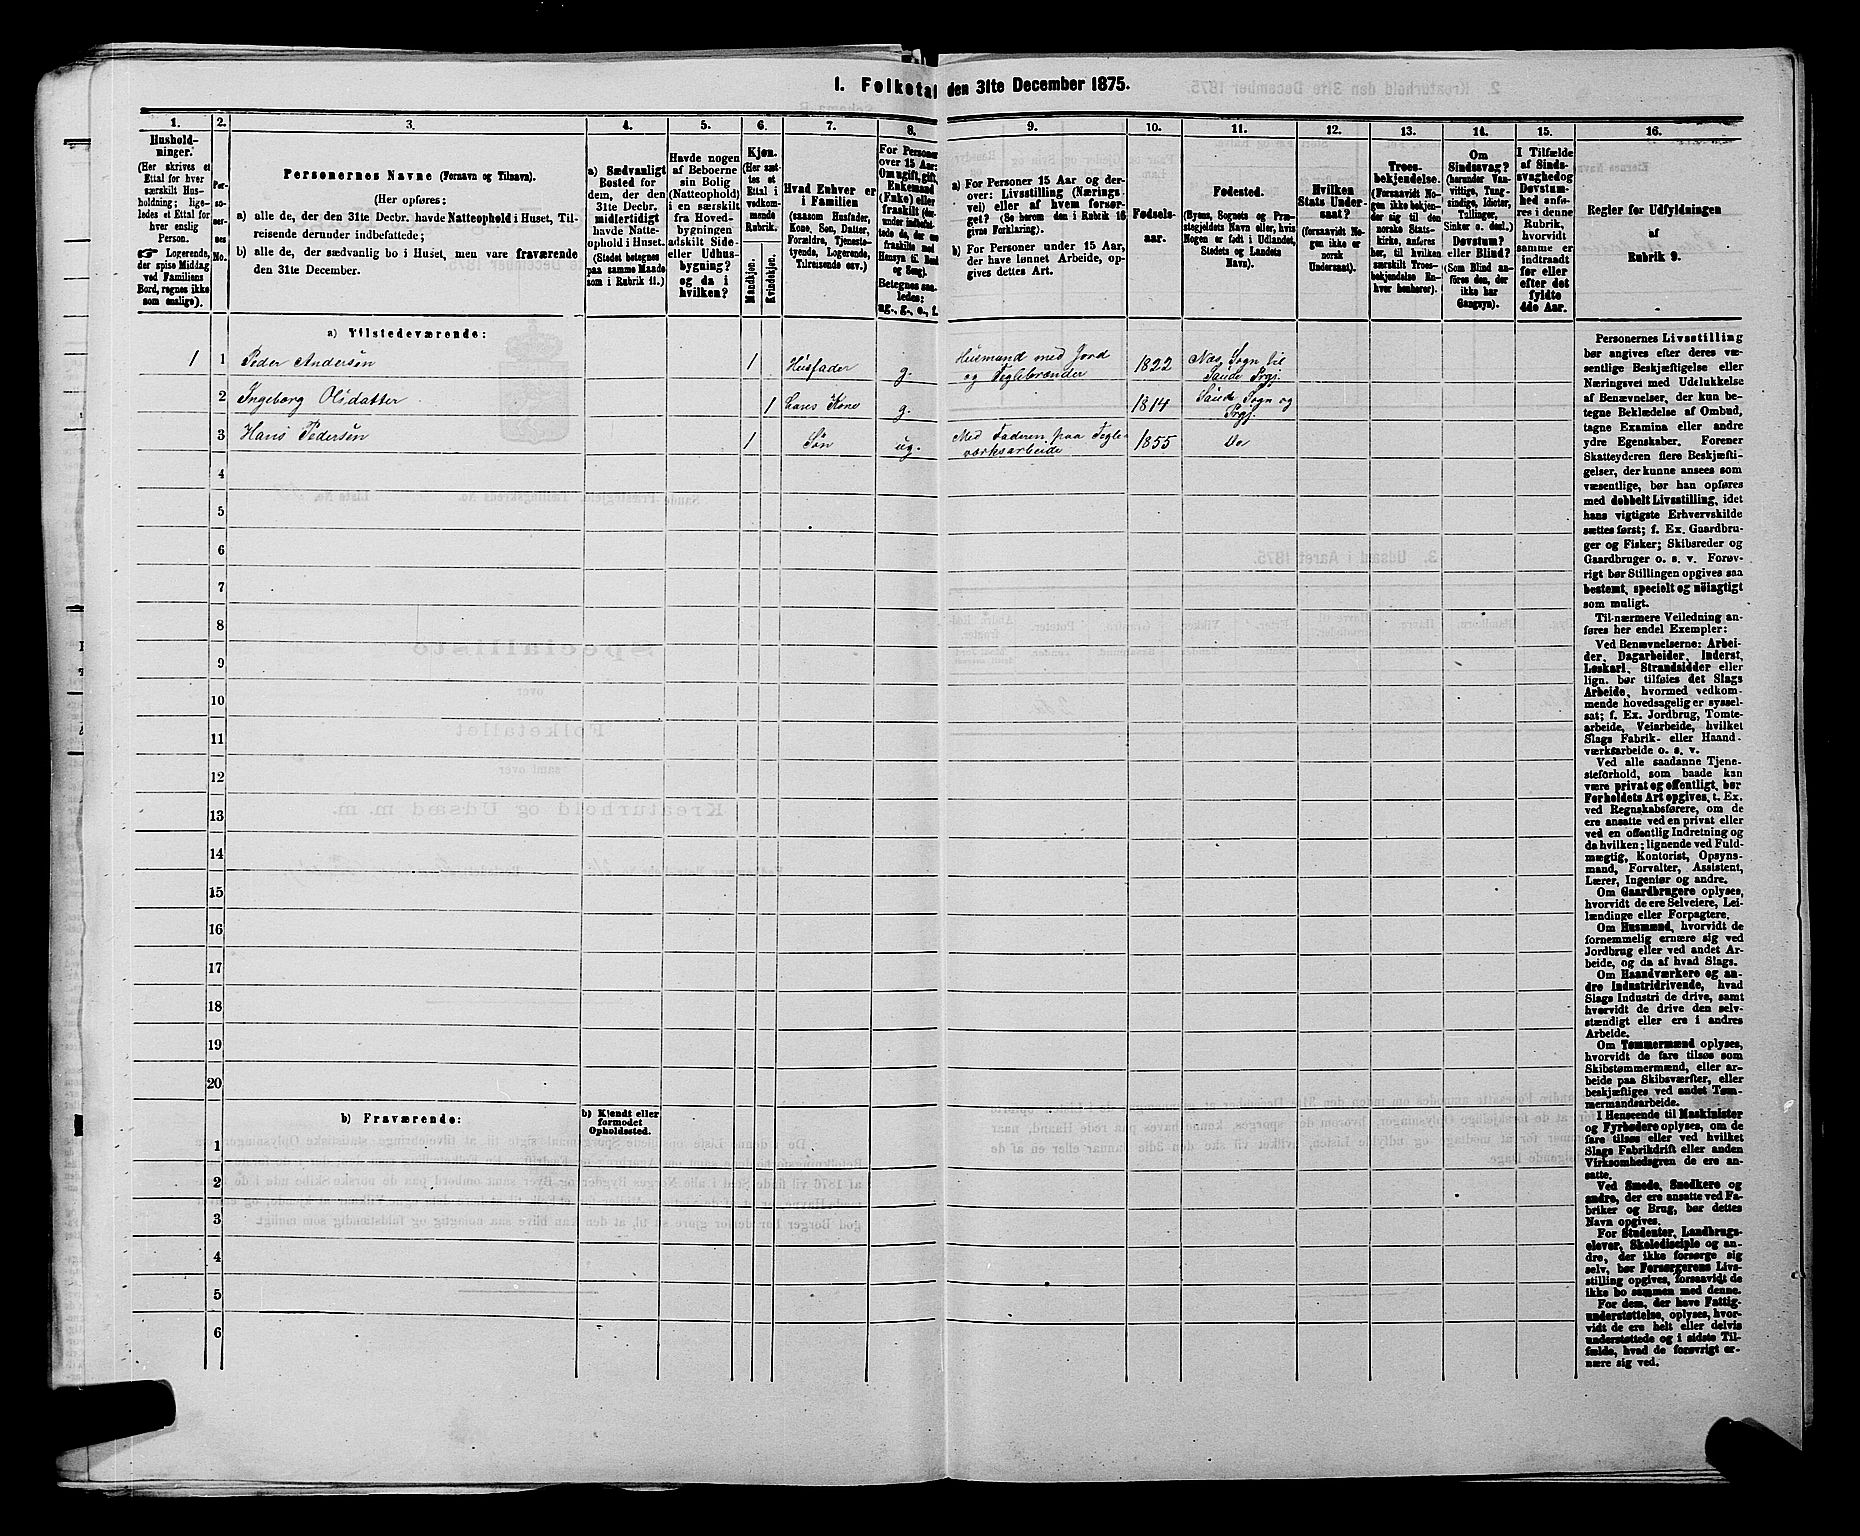 1. Folketal den 31te December 1875.
1.
2.
3.
4.
5.
6.
7.
8.
9.
10.
11.
12.
13.
14.
15.
16.
Hushold-
ninger.
(Her skrives et
Ettal for hver
særskilt Hus-
holdning; lige-
ledes et Ettal for
hver enslig
Person.
Logerende,
der spise Middag
ved Familiens
Bord, regnes ikke
som enslige).
Per-
so-
ner-
nes
No.
Personernes Navne (Fornavn og Tilnavn).
(Her opføres:
a) alle de, der den 31te Decbr. havde Natteophold i Huset, Til-
reisende derunder indbefattede;
b) alle de, der sædvanlig bo i Huset, men vare fraværende
den 31te December.
a) Sædvanligt
Bosted for
dem, der den
31te Decbr.
midlertidigt
havde Natte-
ophold i Huset.
(Stedet betegnes
paa samme Maade
som i Rubrik 11.)
Havde nogen
af Beboerne
sin Bolig
(Natteophold)
i en særskilt
fra Hoved-
bygningen
adskilt Side-
eller Udhus-
bygning?
og da i
hvilken?
Kjøn.
(Her sæt-
tes et
Ettal i
vedkom-
mende
Rubrik.
Mandkjøn.
Kvindekjøn.
Hvad Enhver er
i Familien
(saasom Husfader,
Kone, Søn, Datter,
Forældre, Tjeneste-
tyende, Logerende,
Tilreisende osv.)
For Personer
over 15 Aar:
Om ugift, gift,
Enkemand
(Enke) eller
fraskilt (der-
under indbefat-
tede de, der ere
fraskilte med
Hensyn til Bord
og Seng).
Betegnes saa-
ledes:
ug., g., e., f.
a) For Personer 15 Aar og der-
over: Livsstilling (Nærings-
vei) eller af hvem forsør-
get? (Se herom den i Rubrik 16
givne Forklaring).
b) For Personer under 15 Aar,
der have lønnet Arbeide, op-
gives dettes Art.
Fødsels-
aar.
Fødested.
(Byens, Sognets og Præ-
stegjeldets Navn eller, hvis
Nogen er født i Udlandet,
Stedets og Landets
Navn).
Hvilken
Stats Under-
saat?
(forsaavidt No-
gen ikke er
norsk
Undersaat).
Troes-
bekjendelse.
(Forsaavidt No-
gen ikke bekjen-
der sig til den
norske Stats-
kirke, anføres
her, til hvilken
særskilt Troes-
bekjendelse En-
hver henhører).
Om
Sindssvag?
(herunder Van-
vittige, Tung-
sindige, Idioter,
Tullinger,
Sinker o. desl.).
Døvstum?
eller Blind?
(Som Blind an-
føres den, der
ikke har
Gangsyn).
I Tilfælde
af Sinds-
svaghed og
Døvstum-
hed anfø-
res i denne
Rubrik,
hvorvidt
samme er
indtraadt
før eller
efter det
fyldte
4de Aar.
Regler for Udfyldningen
af
Rubrik 9.
a) Tilstedeværende:
1 1 Peder Andersen 1 Husfader g. Husmand med Jord
og Teglebrænder 1822 Næs Sogn til
Saude Prgj.
2 Ingeborg Olsdatter 1 hans Kone g. 1814 Saude Sogn og
Prgj
3 Hans Pedersen 1 Søn ug. Med Faderen paa Tegle-
værksarbeide 1855 Do
4
5
6
7
8
9
10
11
12
13
14
15
16
17
18
19
20
b) Fraværende:
b) Kjendt eller
formodet
Opholdssted.
1
2
3
4
5
6
Personernes Livsstilling
bør angives efter deres væ-
sentlige Beskjæftigelse eller
Næringsvei med Udelukkelse
af Benævnelser, der kun be-
tegne Beklædelse af Ombud,
tagne Examina eller andre
ydre Egenskaber. Forener
Skatteyderen flere Beskjæfti-
gelser, der kunne ansees som
væsentlige, bør han opføres
med dobbelt Livsstilling, idet
hans vigtigste Erhvervskilde
sættes først; f. Ex. Gaardbru-
ger og Fisker; Skibsreder og
Gaardbruger o. s. v. Forøv-
rigt bør Stillingen opgives saa
bestemt, specielt og nöiagtigt
som muligt.
Til nærmere Veiledning an-
føres her endel Exempler:
Ved Benævnelserne: Arbei-
der, Dagarbeider, Inderst,
Løskarl, Strandsidder eller
lign. bør tilføies det Slags
Arbeide, hvormed vedkom-
mende hovedsagelig er syssel-
sat; f. Ex. Jordbrug, Tomte-
arbeide, Veiarbeide, hvilket
Slags Fabrik- eller Haand-
værksarbeide o. s. v.
Ved alle saadanne Tjene-
steforhold, som baade kan
være privat og offentligt, bør
Forholdets Art opgives, t. Ex.
ved Regnskabsførere, om de
ere ansatte ved en privat eller
ved en offentlig Indretning og
da hvilken; lignende ved Fuld-
mægtig, Kontorist, Opsyns-
mand, Forvalter, Assistent,
Lærer, Ingeniør og andre.
Om Gaardbrugere oplyses,
hvorvidt de ere Selveiere, Lei-
lændinge eller Forpagtere.
Om Husmænd, hvorvidt de
fornemmelig ernære sig ved
Jordbrug eller ved andet Ar-
beide, og da af hvad Slags.
Om Haandværkere og an-
dre Industridrivende, hvad
Slags Industri de drive, samt
hvorvidt de drive den selv-
stændigt eller ere i andres
Arbeide.
Om Tømmermænd oplyses,
hvorvidt de fare tilsøs som
Skibstømmermænd, eller ar-
beide paa Skibsværfter, eller
beskjæftiges ved andet Tøm-
mermandsarbeide.
I Henseende til Maskinister
og Fyrbødere oplyses, om de
fare tilsøs eller ved hvilket
Slags Fabrikdrift eller anden
Virksomhedsgren de ere an-
satte.
Ved Smede, Snedkere og
andre, der ere ansatte ved Fa-
briker og Brug, bør dettes
Navn opgives.
For Studenter, Landbrugs-
elever, Skoledisciple og an-
dre, der ikke forsørge sig
selv, bør Forsørgerens Livs-
stilling opgives, forsaavidt de
ikke bo sammen med denne.
For dem, der have Fattig-
understøttelse, oplyses, hvor-
vidt de ere helt eller delvis
understøttede og i sidste Til-
fælde, hvad de forøvrigt er-
nære sig ved.